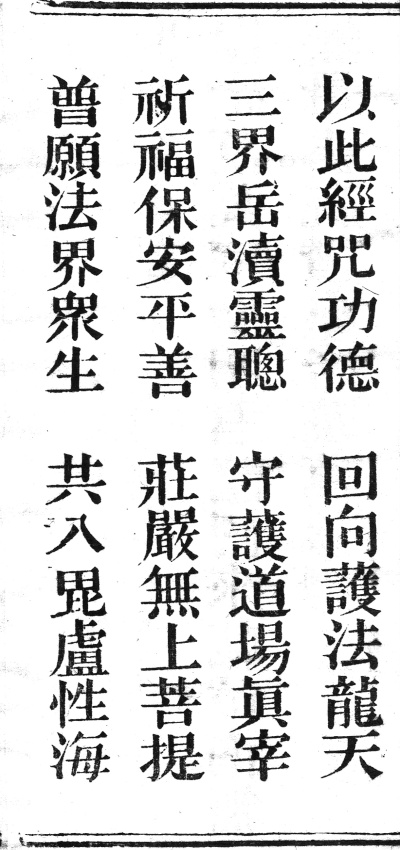 以此經咒功德　回向護法龍天
三界岳瀆靈聰　守護道場眞宰
祈福保安平善　莊嚴無上菩提
普願法界衆生　共入毘盧性海